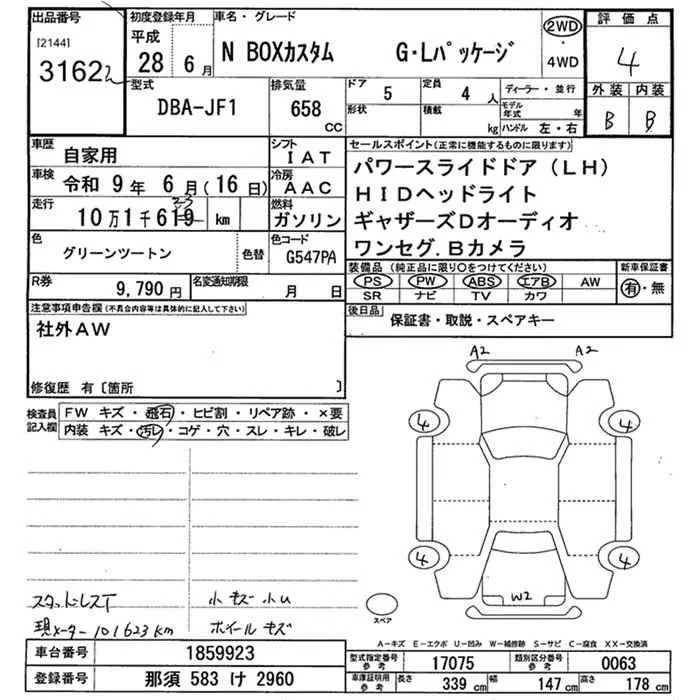 出品番号
[2144]
3162
初度登録年月
平成
28 6月
車名・グレード
N BOXカスタム G・Lパッケージ
2WD
・
4WD
評価点
4
外装 内装
B B
型式
DBA-JF1
排気量
658
CC
ドア 5
形状
定員 4 人
積載 kg
ディーラー・並行
モデル年式 年
ハンドル 左・右
車歴 自家用
シフト IAT
車検 令和 9年 6月(16日)
冷房 AAC
走行 10万1千619 km
23
燃料 ガソリン
色 グリーンツートン 色替
色コード G547PA
R券 9,790円
名変通知期限 月 日
セールスポイント(正常に機能するものに限ります)
パワースライドドア(LH)
HIDヘッドライト
ギャザーズDオーディオ
ワンセグ.Bカメラ
装備品(純正品に限り○をつけてください)
PS PW ABS エアB AW
SR ナビ TV カワ
新車保証書
有・無
後日品 保証書・取説・スペアキー
注意事項申告欄(不具合内容等は具体的に記入して下さい)
社外AW
修復歴 有〔箇所 〕
検査員記入欄
FW キズ・飛石・ヒビ割・リペア跡・×要
内装 キズ・汚レ・コゲ・穴・スレ・キレ・破レ
A2 A2
4 4
4 4
W2
スペア
スタッドレスT
小キズ小U
現メーター101623km
ホイールキズ
A-キズ E-エクボ U-凹み W-補修跡 S-サビ C-腐食 XX-交換済
車台番号 1859923
登録番号 那須 583 け 2960
型式指定番号参考 17075
類別区分番号参考 0063
車庫証明用参考 長さ 339cm 幅 147cm 高さ 178cm